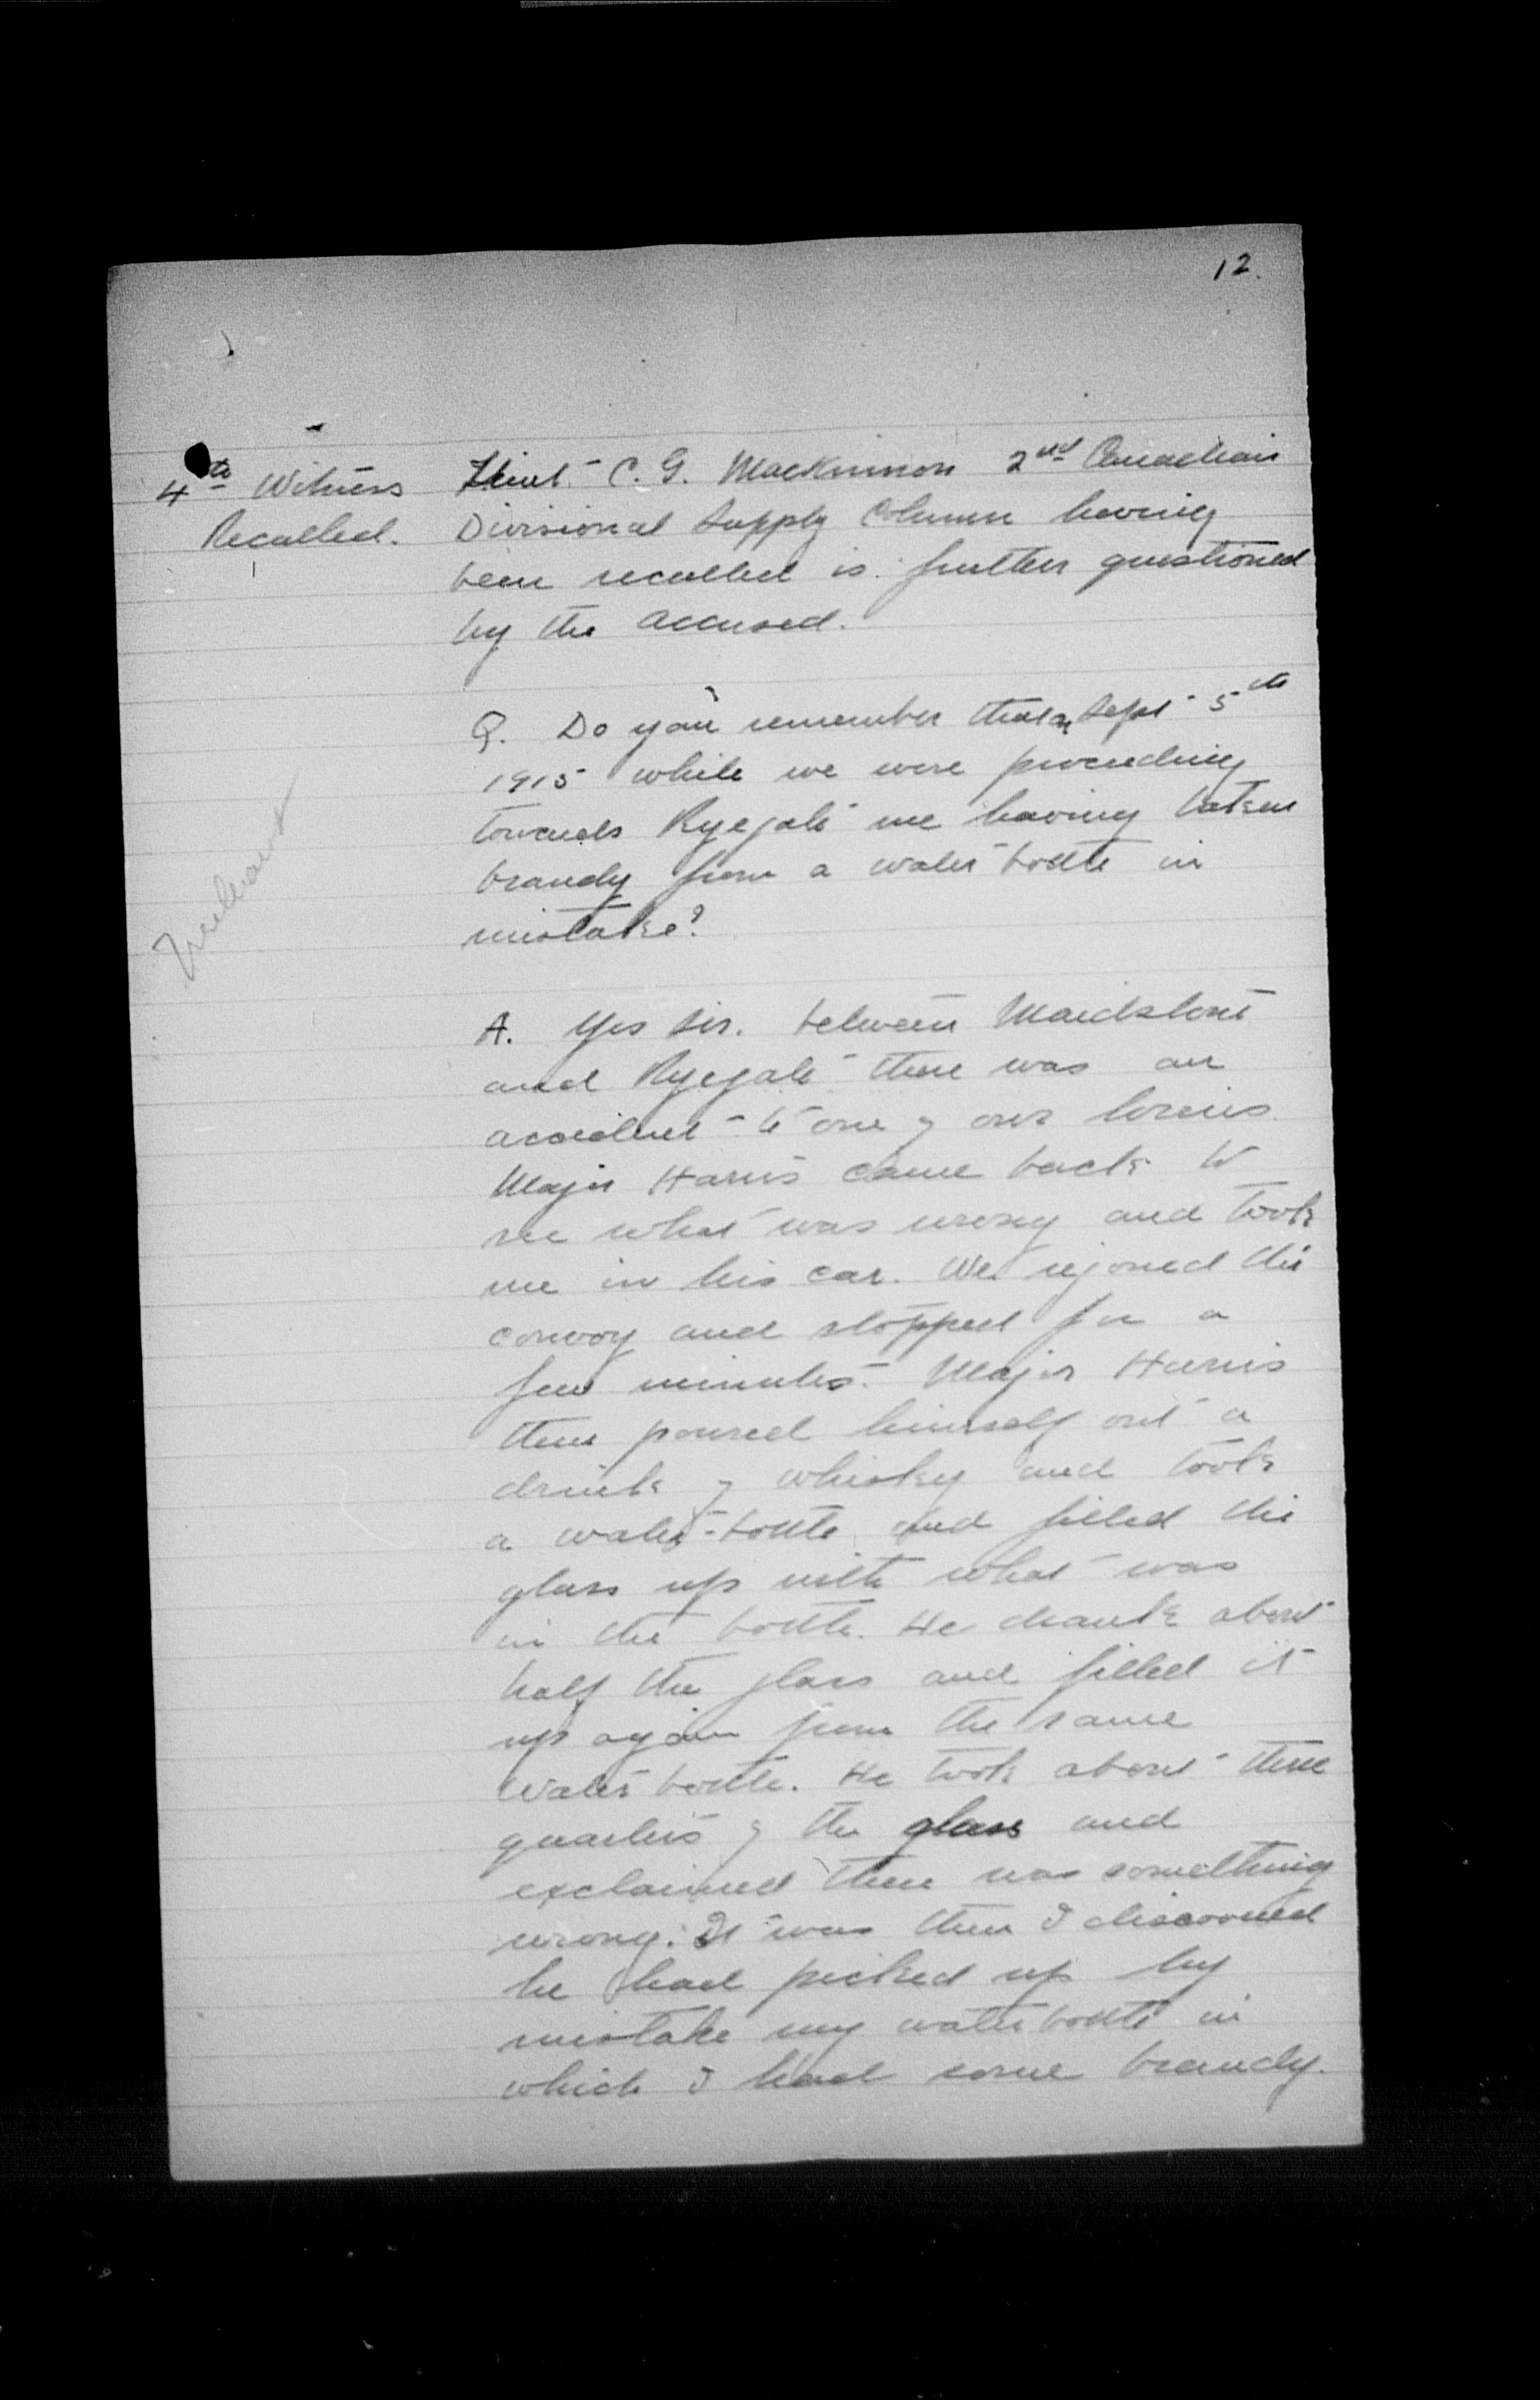 12.
4th Witness Lieut. C. G. MacKinnon 2nd Canadian
Recalled. Divisional Supply Column having
been recalled is further questioned
by the accused.
Q. Do you remember that on Sept 5th
1915 while we were proceeding
towards Ryegate me having taken
brandy from a water bottle in
mistake?
A. Yes Sir. between Maidstone
and Ryegate there was an
accident to one of our lorries.
Major Harris came back to
see what was wrong and took
me in his car. We rejoined the
convoy and stopped for a
few minutes. Major Harris
then poured himself out a
drink of whisky and took
a water-bottle and filled the
glass up with what was
in the bottle. He drank about
half the glass and filled it
up again from the same
water bottle. He took about three
quarters of the glass and
exclaimed there was something
wrong. It was then I discovered
he had picked up by
mistake my water bottle in
which I had some brandy.